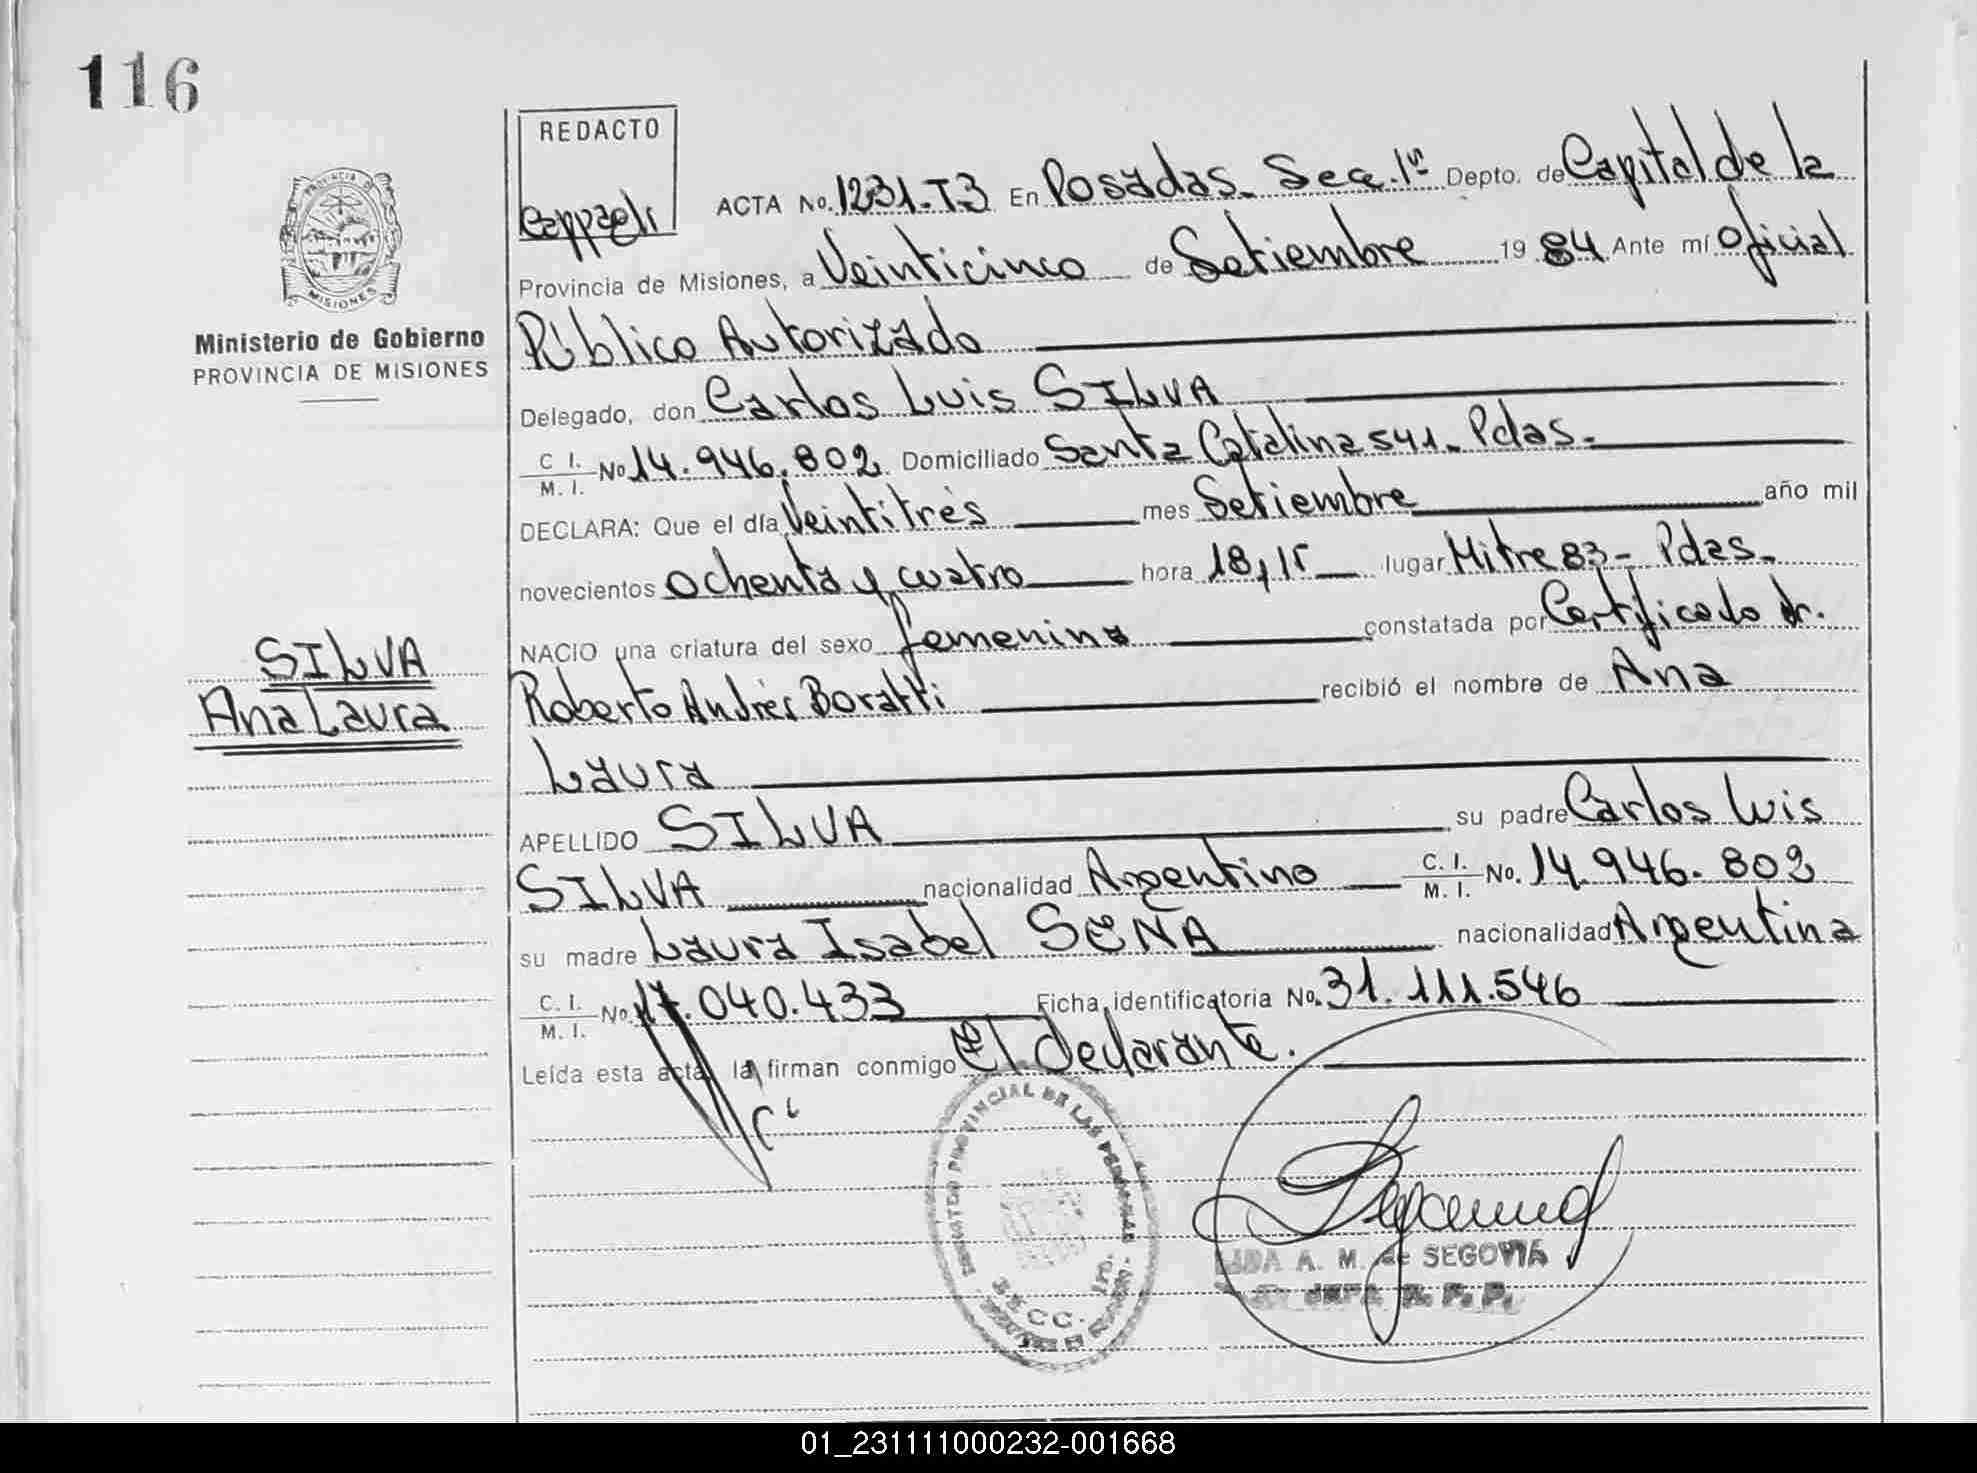 116
REDACTO
PROVINCIA DE
MISIONES
ACTA No. 1231-T3 En Posadas- Secc. 1ª Depto. de Capital de la
Provincia de Misiones, a Veinticinco de Setiembre 1984 Ante mí Oficial
Ministerio de Gobierno
PROVINCIA DE MISIONES
Público Autorizado
Delegado, don Carlos Luis SILVA
C. I. / M. I. No 14.946.802 Domiciliado Santa Catalina 541- Pdas.-
DECLARA: Que el día Veintitrés mes Setiembre año mil
novecientos ochenta y cuatro hora 18,15 lugar Mitre 83- Pdas-
NACIO una criatura del sexo femenino constatada por Certificado dr.
SILVA
Ana Laura
Roberto Andrés Boratti recibió el nombre de Ana
Laura
APELLIDO SILVA su padre Carlos Luis
SILVA nacionalidad Argentino C. I. / M. I. No. 14.946.802
su madre Laura Isabel SEÑA nacionalidad Argentina
C. I. / M. I. No. 17.040.433 Ficha identificatoria No. 31.111.546
Leída esta acta, la firman conmigo El declarante.
REGISTRO PROVINCIAL DE LAS PERSONAS
SECC. 1ra.
A. M. de SEGOVIA
JEFA R. P. P.
01_231111000232-001668